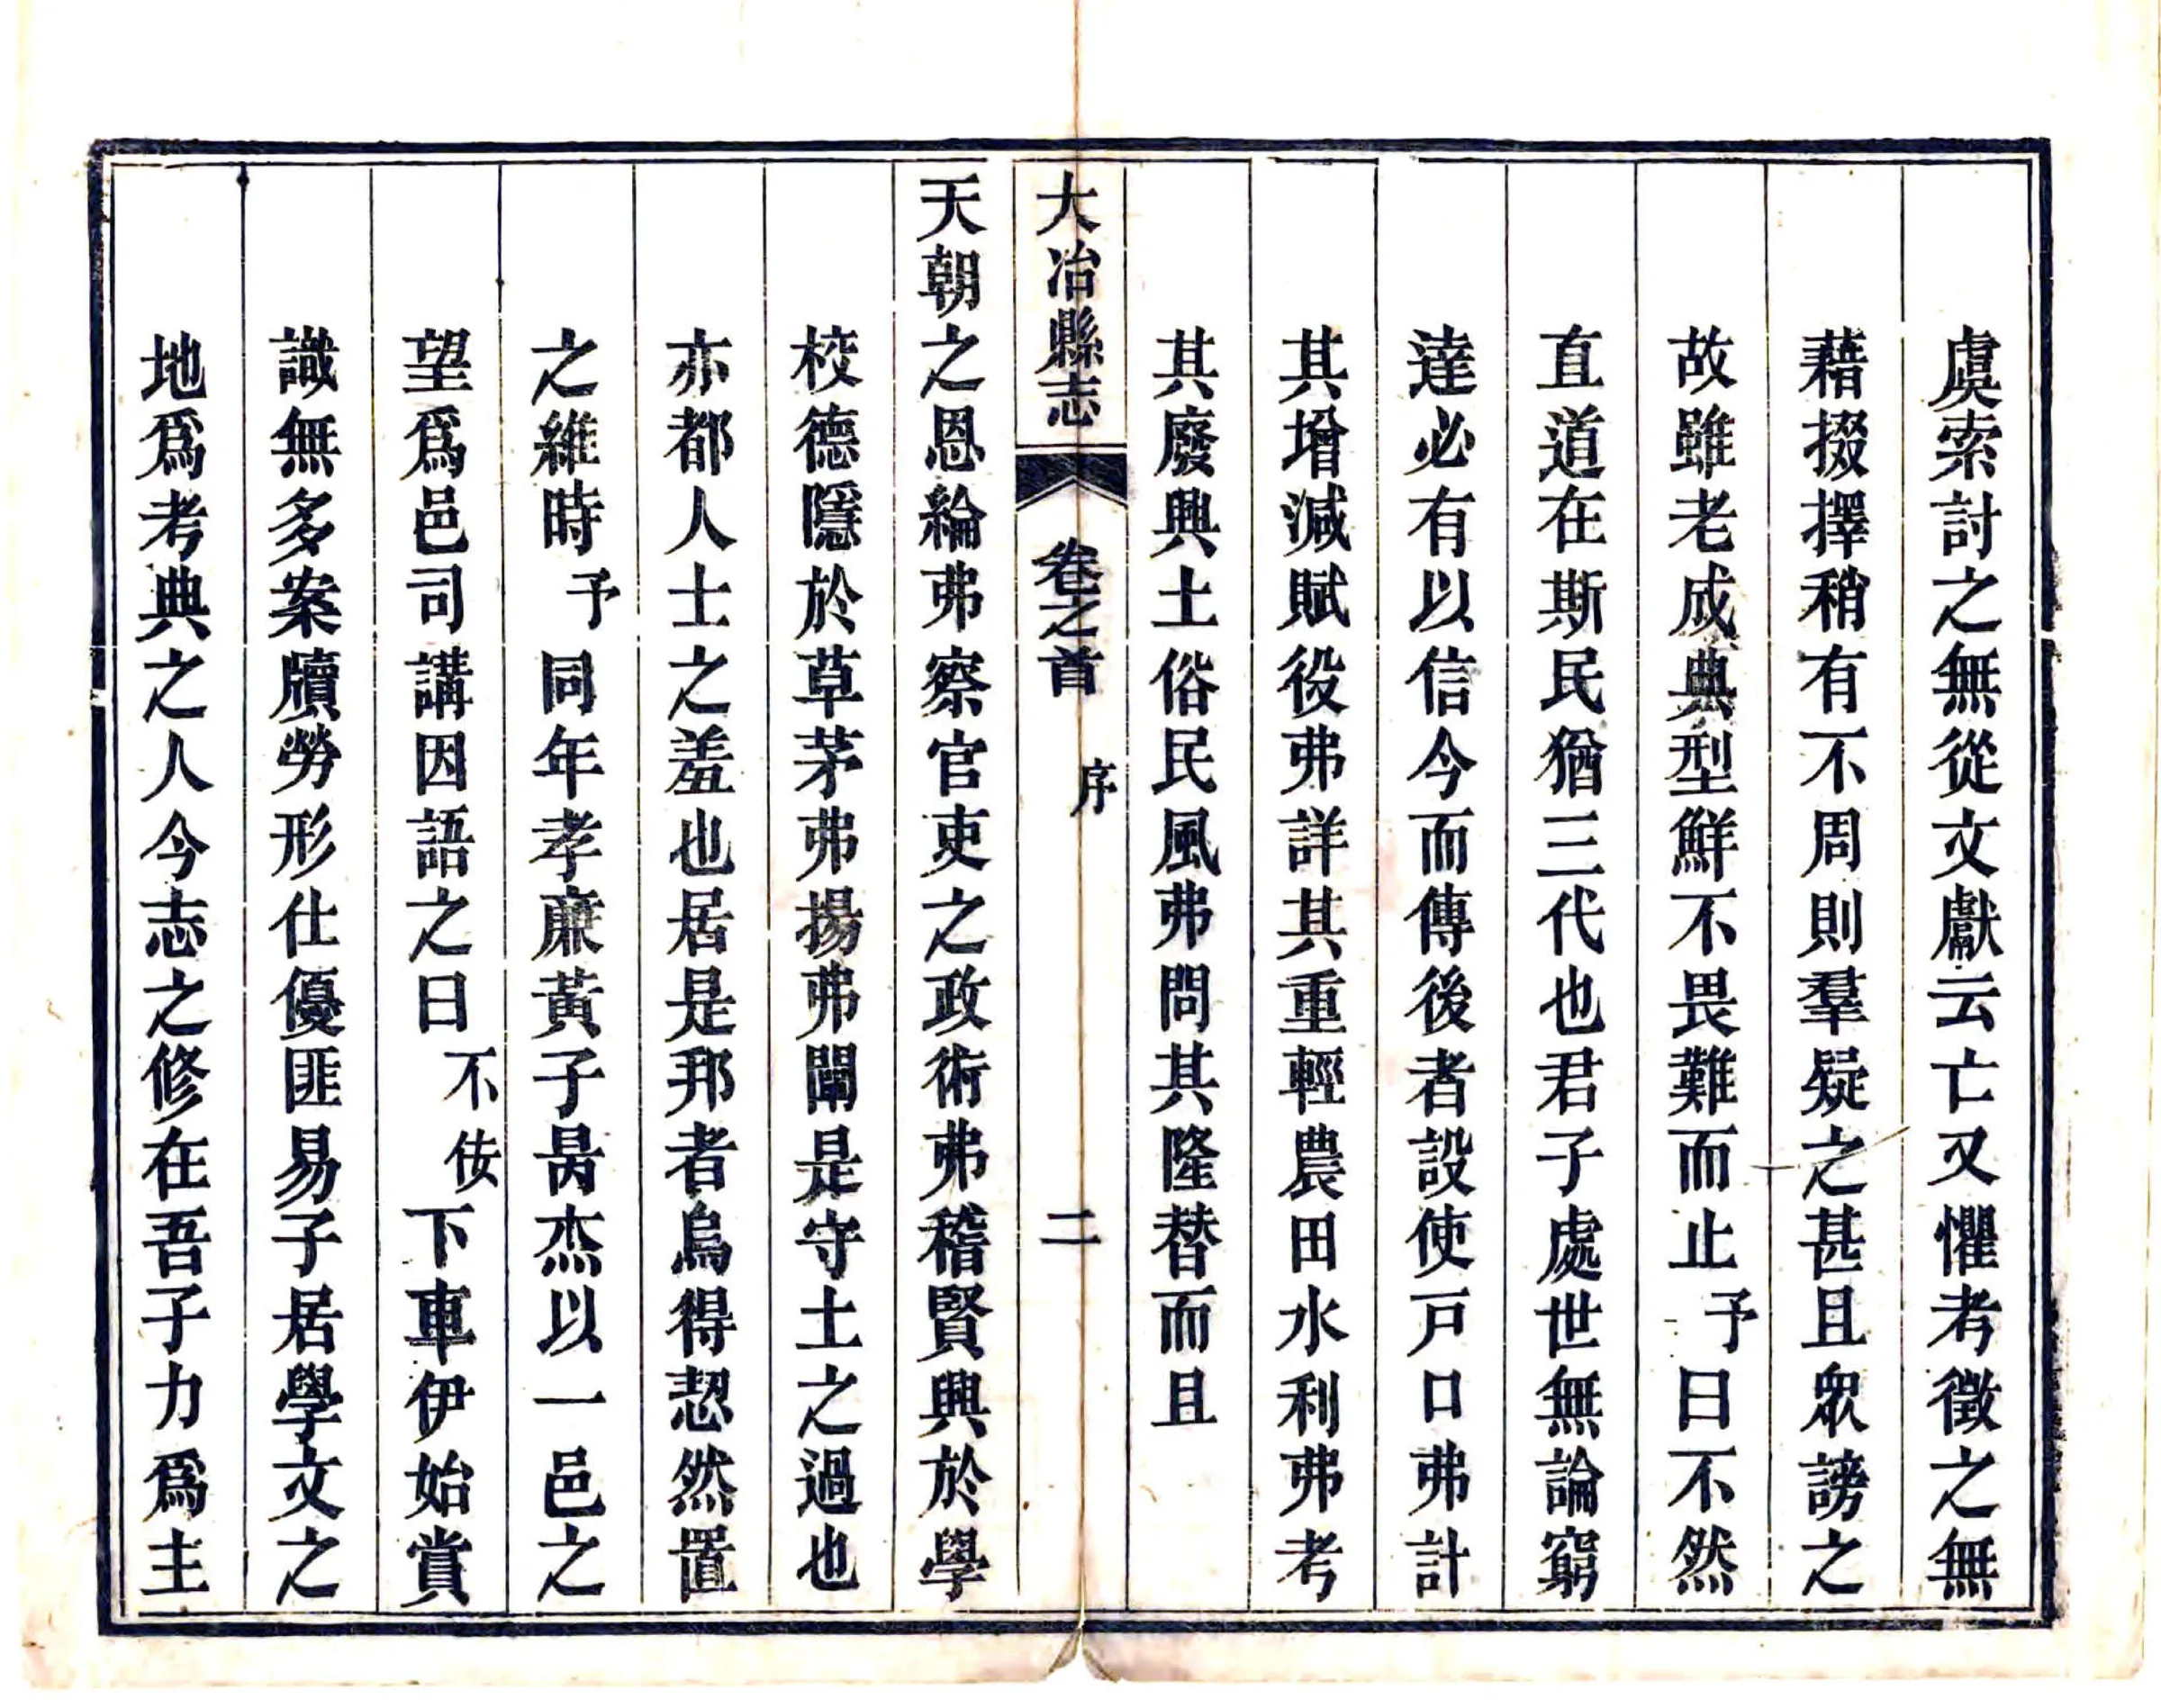 虞索討之無從文獻云亡又懼考徵之無
藉掇擇稍有不周則羣疑之甚且衆謗之
故雖老成典型鮮不畏難而止予曰不然
直道在斯民猶三代也君子處世無論窮
達必有以信今而傳後者設使戸口弗計
其增減賦役弗詳其重輕農田水利弗考
其廢興土俗民風弗問其隆替而且
大冶縣志 卷之首 序 二
天朝之恩綸弗察官吏之政術弗稽賢興於學
校德隱於草茅弗揚弗闡是守土之過也
亦都人士之羞也居是邦者烏得恝然置
之維時予同年孝亷黃子昺杰以一邑之
望爲邑司講因語之曰不佞下車伊始賞
識無多案牘勞形仕優匪易子居學文之
地爲考典之人今志之修在吾子力爲主